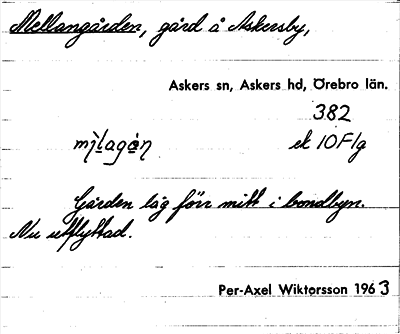 Mellangården, gård å Askersby,
Askers sn, Askers hd, Örebro län.
382
ek 10F1g
Gården låg förr mitt i bondbyn.
Nu utflyttad.
Per-Axel Wiktorsson 1963